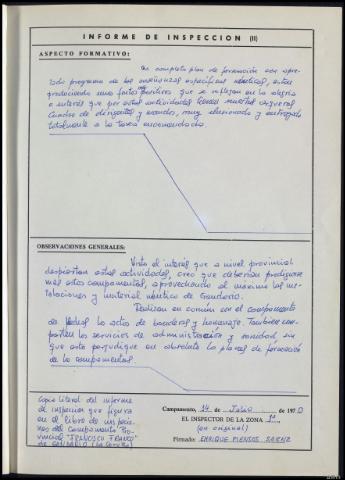 INFORME DE INSPECCION (II)
ASPECTO FORMATIVO:
Un completo plan de formación con apre-
tado programa de las enseñanzas específicas náuticas, están
produciendo unos frutos positivos que se reflejan en la alegría
e interés que por estas actividades
Cuadro de dirigentes y mandos, muy ilusionado y entregado
totalmente a la tarea encomendada
OBSERVACIONES GENERALES:
Visto el interés que a nivel provincial
despiertan estas actividades, creo que deberían prodigarse
más estos campamentos, aprovechando al máximo las ins-
talaciones y material náutico de Gandario.
Realizan en común con el campamento
de los actos de banderas y homenaje. También com-
parten los servicios de administración y sanidad sin
que esto perjudique en absoluto los planes de formación
de los campamentos.
Copia literal del informe
de inspección que figura
en el libro de inspeccio-
nes del Campamento Pro-
vincial "FRANCISCO FRANCO"
de GANDARIO (La Coruña)
Campamento, 14 de Julio de 1970
EL INSPECTOR DE LA ZONA 1ª
(en original)
Firmado: ENRIQUE SAENZ